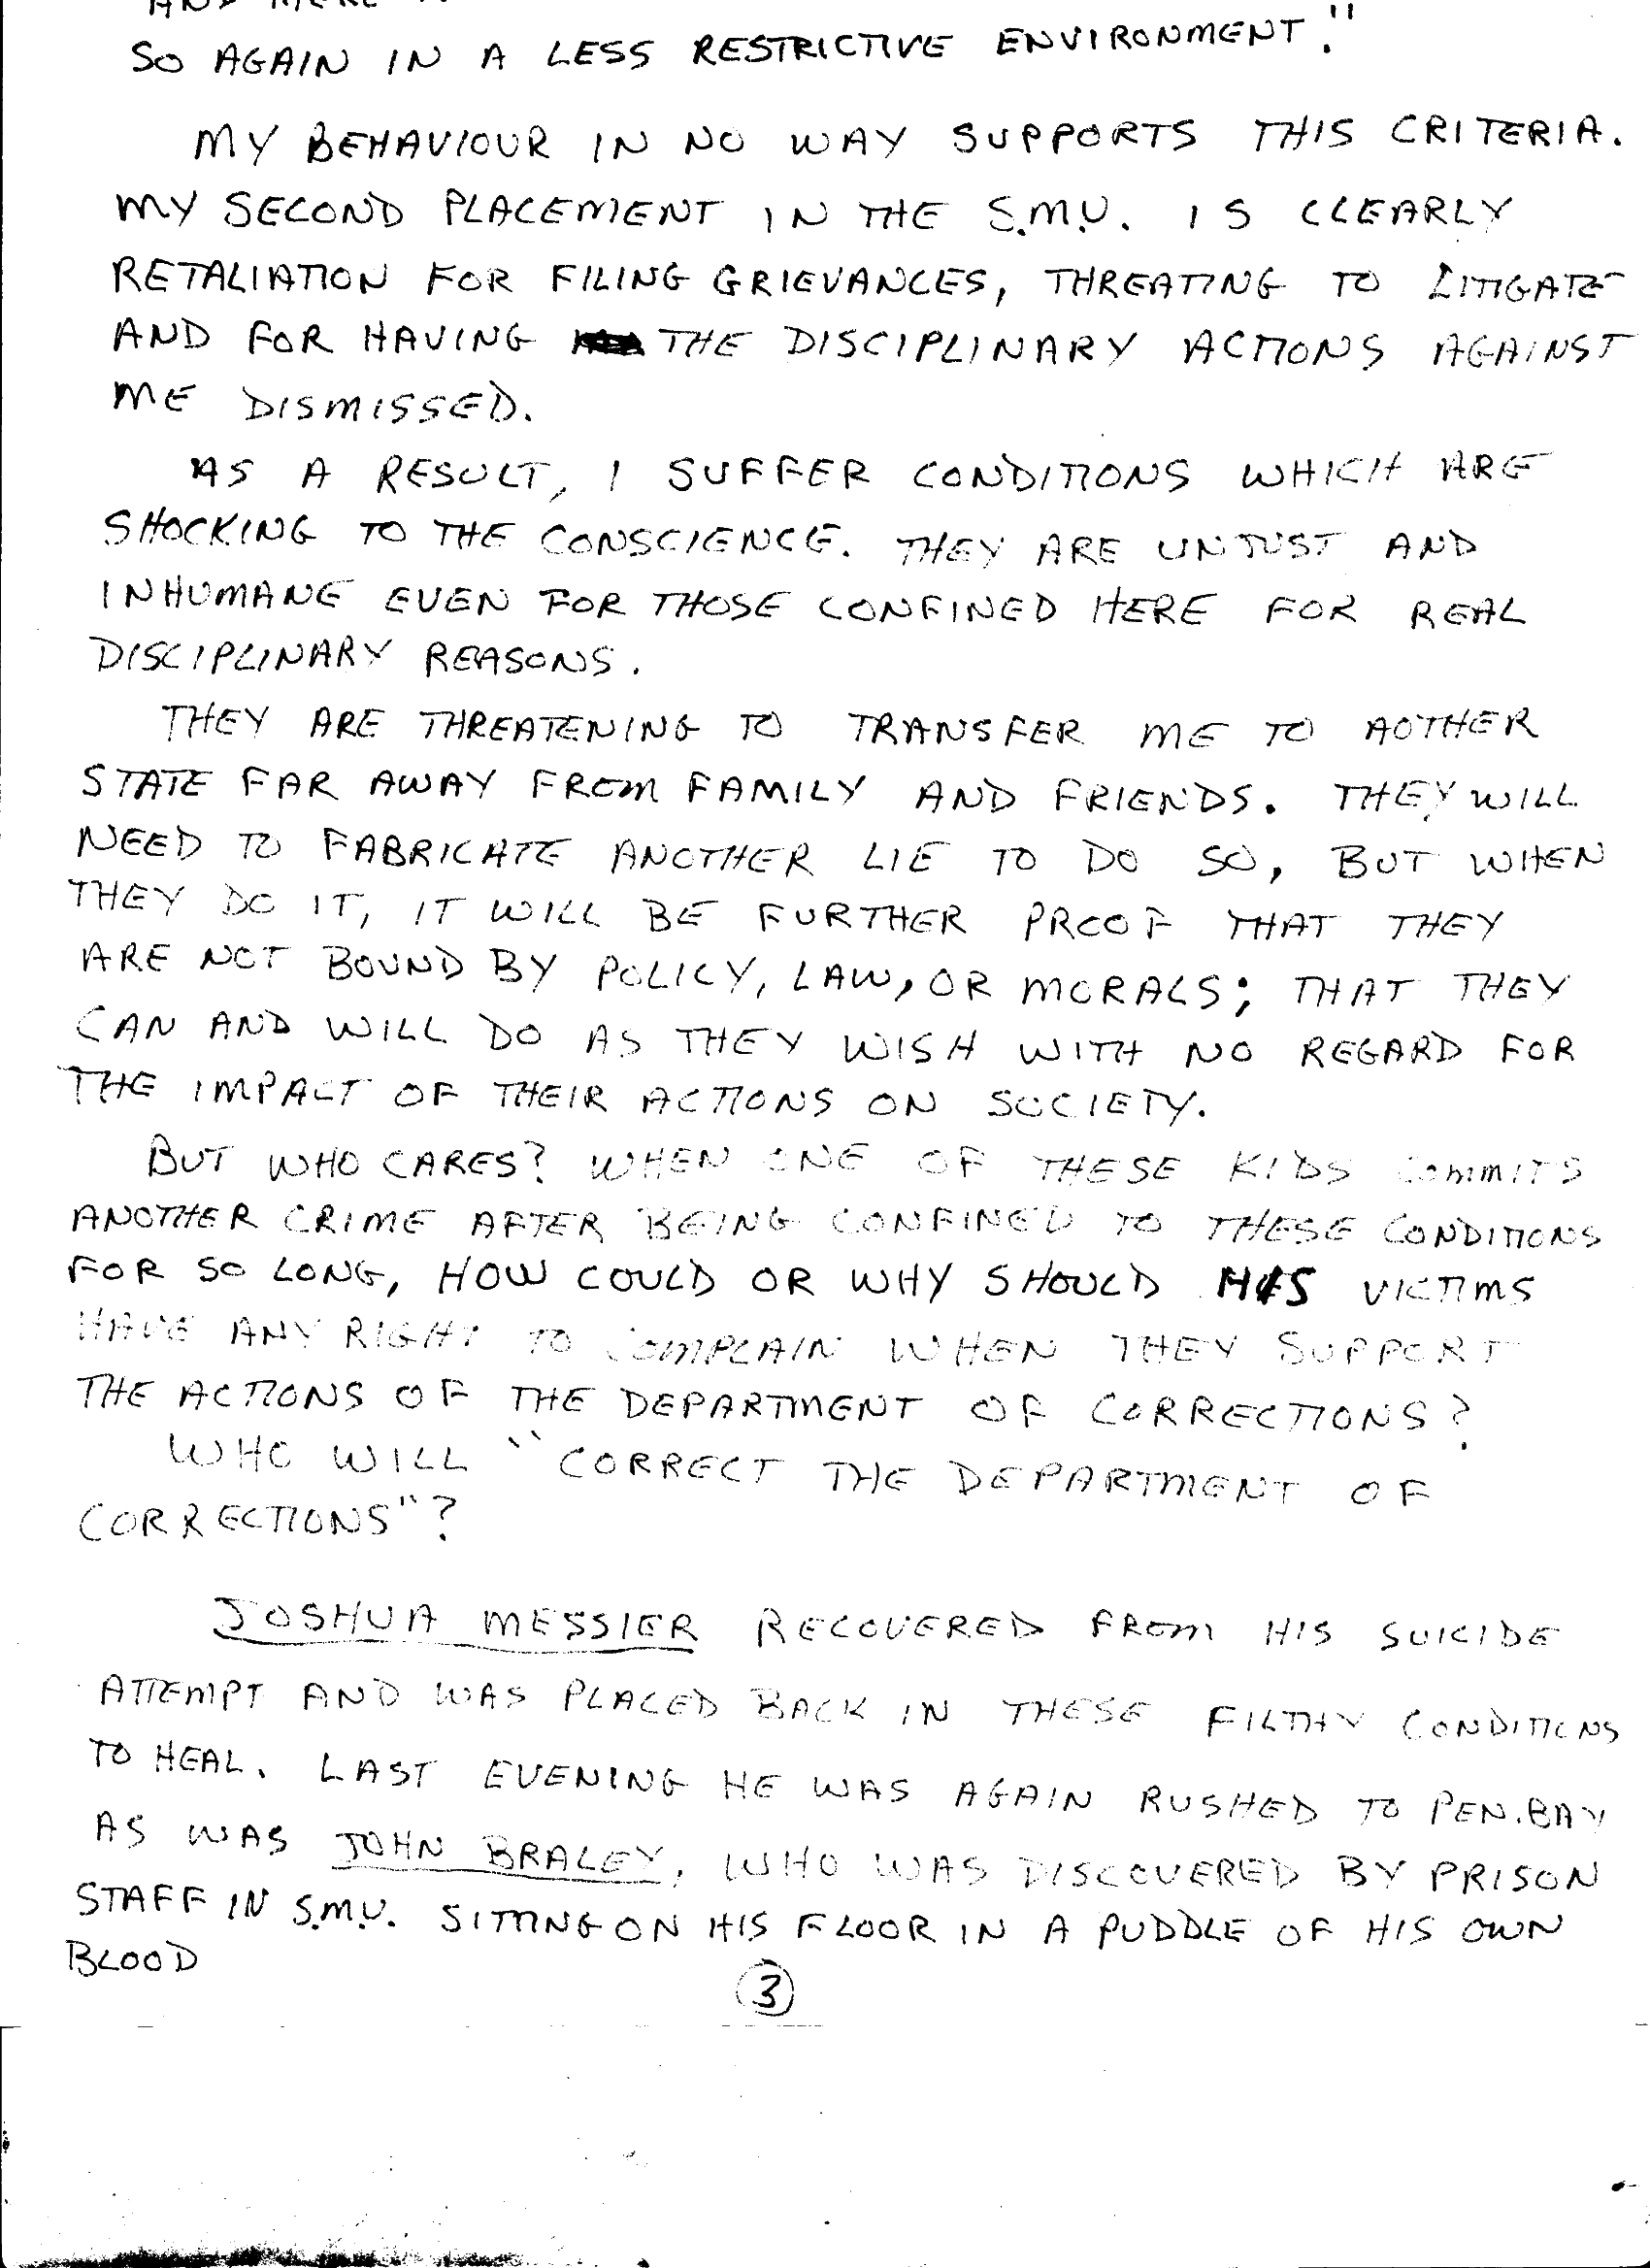 SO AGAIN IN A LESS RESTRICTIVE ENVIRONMENT."
MY BEHAVIOUR IN NO WAY SUPPORTS THIS CRITERIA.
MY SECOND PLACEMENT IN THE S.M.U. IS CLEARLY
RETALIATION FOR FILING GRIEVANCES, THREATING TO LITIGATE
AND FOR HAVING THE DISCIPLINARY ACTIONS AGAINST
ME DISMISSED.
AS A RESULT, I SUFFER CONDITIONS WHICH ARE
SHOCKING TO THE CONSCIENCE. THEY ARE UNJUST AND
INHUMANE EVEN FOR THOSE CONFINED HERE FOR REAL
DISCIPLINARY REASONS.
THEY ARE THREATENING TO TRANSFER ME TO AOTHER
STATE FAR AWAY FROM FAMILY AND FRIENDS. THEY WILL
NEED TO FABRICATE ANOTHER LIE TO DO SO, BUT WHEN
THEY DO IT, IT WILL BE FURTHER PROOF THAT THEY
ARE NOT BOUND BY POLICY, LAW, OR MORALS; THAT THEY
CAN AND WILL DO AS THEY WISH WITH NO REGARD FOR
THE IMPACT OF THEIR ACTIONS ON SOCIETY.
BUT WHO CARES? WHEN ONE OF THESE KIDS COMMITS
ANOTHER CRIME AFTER BEING CONFINED TO THESE CONDITIONS
FOR SO LONG, HOW COULD OR WHY SHOULD HIS VICTIMS
HAVE ANY RIGHT TO COMPLAIN WHEN THEY SUPPORT
THE ACTIONS OF THE DEPARTMENT OF CORRECTIONS?
WHO WILL "CORRECT THE DEPARTMENT OF
CORRECTIONS"?
JOSHUA MESSIER RECOVERED FROM HIS SUICIDE
ATTEMPT AND WAS PLACED BACK IN THESE FILTHY CONDITIONS
TO HEAL. LAST EVENING HE WAS AGAIN RUSHED TO PEN.BAY
AS WAS JOHN BRALEY, WHO WAS DISCOVERED BY PRISON
STAFF IN S.M.U. SITTING ON HIS FLOOR IN A PUDDLE OF HIS OWN
BLOOD
3